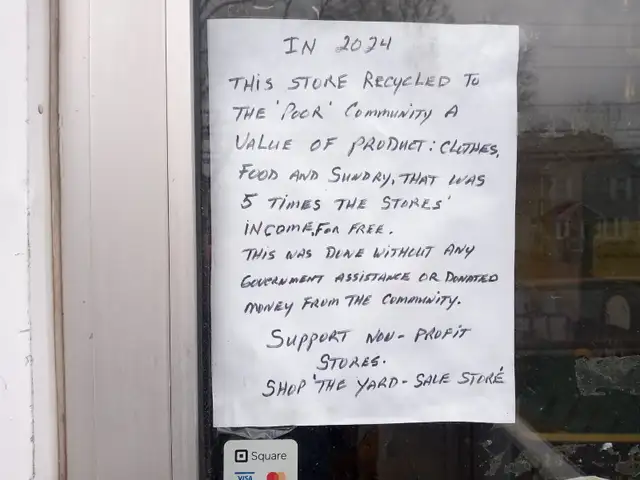 IN 2024
THIS STORE RECYCLED TO
THE 'POOR' COMMUNITY A
VALUE OF PRODUCT: CLOTHES,
FOOD AND SUNDRY, THAT WAS
5 TIMES THE STORES'
INCOME, FOR FREE.
THIS WAS DONE WITHOUT ANY
GOVERNMENT ASSISTANCE OR DONATED
MONEY FROM THE COMMUNITY.
SUPPORT NON-PROFIT
STORES.
SHOP 'THE YARD-SALE STORE'
Square
VISA